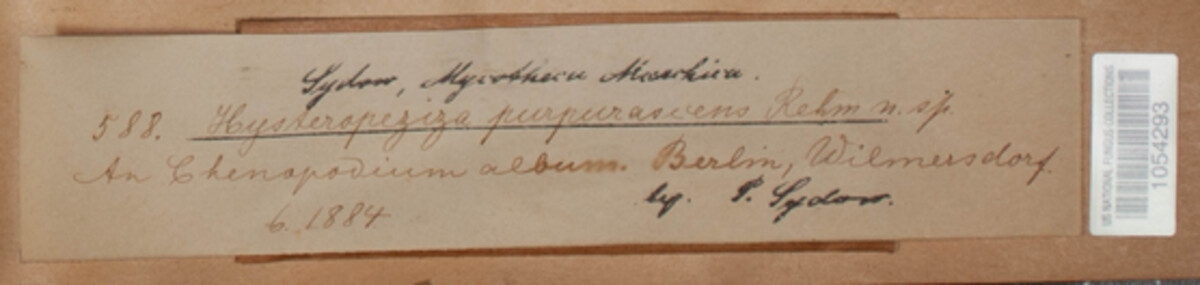 Sydow, Mycotheca Marchica.
588. Hysteropeziza purpurascens Rehm n. sp.
An Chenopodium album. Berlin, Wilmersdorf.
6. 1884
leg. P. Sydow.
US NATIONAL FUNGUS COLLECTIONS
1054293